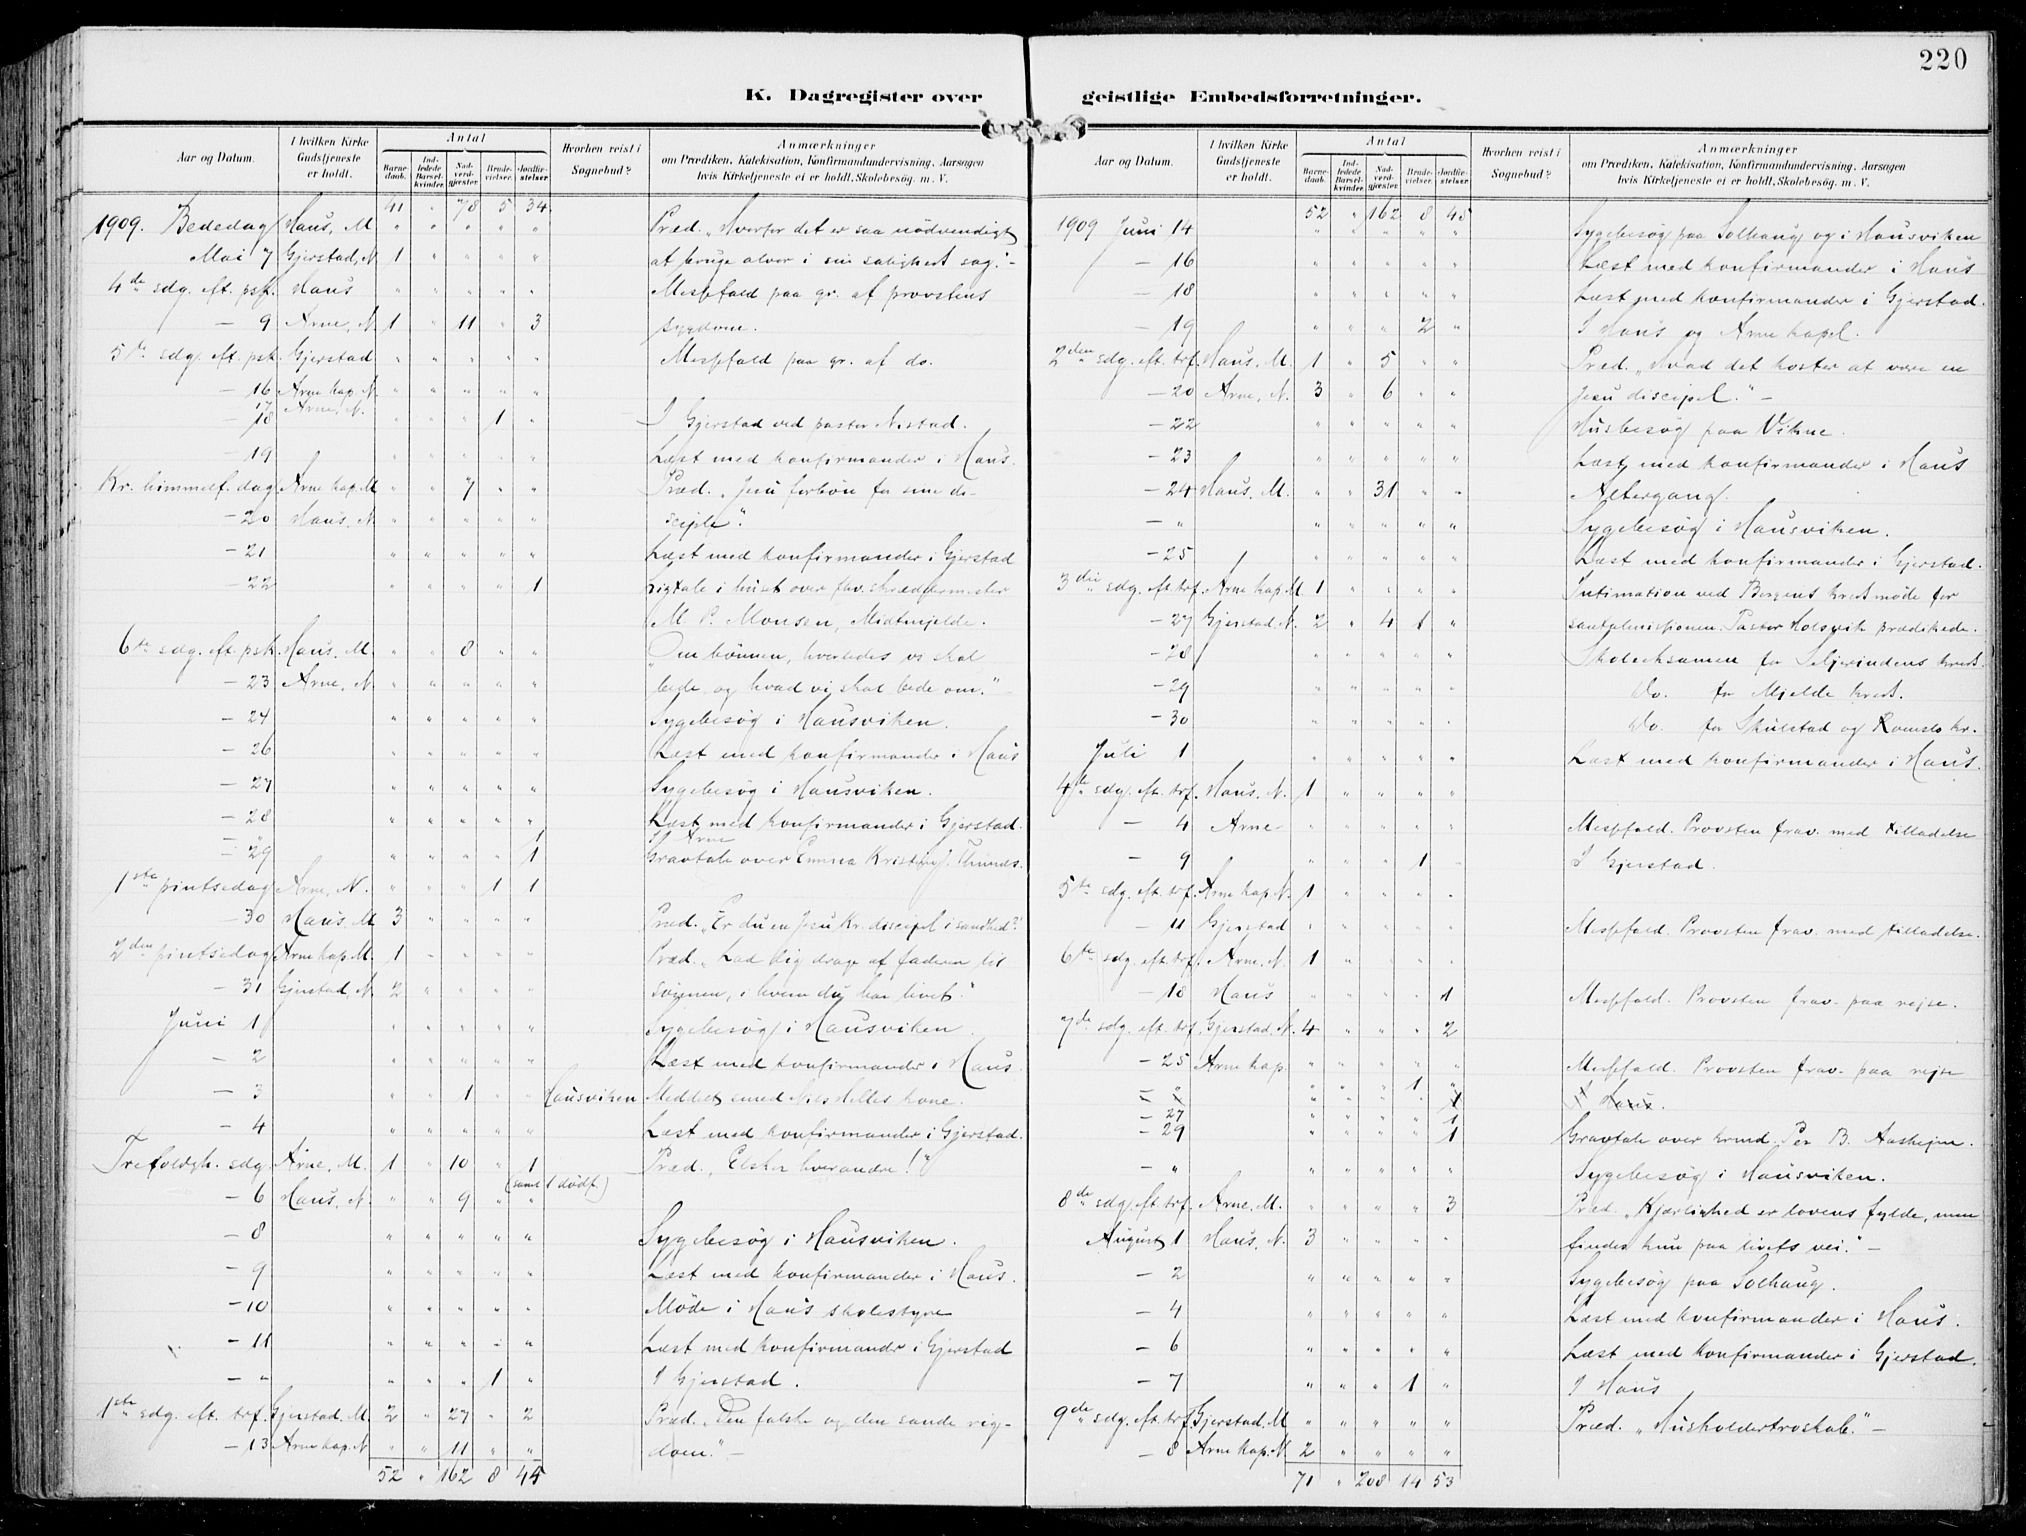 220
K. Dagregister over geistlige Embedsforretninger.
Aar og Datum. | I hvilken Kirke Gudstjeneste er holdt. | Antal | Barne-daab. | Ind-ledede Barsel-kvinder. | Nad-verd-gjæster. | Brude-vielser. | Jordfæ-stelser. | Hvorhen reist i Sognebud? | Anmærkninger om Prædiken, Katekisation, Konfirmandundervisning, Aarsagen hvis Kirketjeneste ei er holdt, Skolebesög. m. V.
41 " 78 5 34
1909. Bededag Haus, M " " " " " Præd. „Hvorfor det er saa nödvendigt
Mai 7 Gjerstad, N 1 " " " " at bruge alvor i sin saligheds sag." -
4de sdg. eft. psk. Haus " " " " " Messefald paa gr. af provstens
- 9 Arne, N. 1 " 11 " 3 sygdom.
5te sdg. eft. psk. Gjerstad " " " " " Messefald paa gr. af do.
- 16 Arne kap. N. " " " " "
17 Arne, N.
- 18 " " " 1 " I Gjerstad ved pastor Nestad.
- 19 " " " " " Læst med konfirmander i Haus.
Kr. himmelf. dag Arne kap. M " " 7 " " Præd. „Jesu forbön for sine di-
- 20 Haus, N. " " " " " sciple".
- 21 " " " " " Læst med konfirmander i Gjerstad
- 22 " " " " 1 Ligtale i huset over fhv. skræddermester
M. P. Monsen, Midtmjelde.
6te sdg. eft. psk. Haus, M. " " 8 " " „Om bönnen, hvorledes vi skal
- 23 Arne, N. " " " " " bede og hvad vi skal bede om." -
- 24 " " " " " Sygebesög i Hausviken.
- 26 " " " " " Læst med konfirmander i Haus
- 27 " " " " " Sygebesög i Hausviken.
- 28 " " " " " Læst med konfirmander i Gjerstad.
- " " " " " 1 I Arne
- 29 " " " " 1 Gravtale over Emma Kristine
1ste pintsedag Arne, N. " " " 1 1
- 30 Haus, M 3 " " " " Præd. „Er du en Jesu Kr. discipel i sandhed?"
2den pintsedag Arne kap. M. 1 " " " " Præd. „Lad dig drage af faderen til
- 31 Gjerstad, N. 2 " " " " sönnen, i hvem du har livet."
Juni 1 " " " " " Sygebesög i Hausviken.
- 2 " " " " " Læst med konfirmander i Haus.
- 3 " " 1 " " Hausviken Meddelt smed Nils Helles kone.
- 4 " " " " " Læst med konfirmander i Gjerstad.
Trefoldigh. sdg. Arne, M. 1 " 10 " 1 Præd. „Elsker hverandre!"
(samt 1 dödf.)
- 6 Haus, N. " " 9 " "
- 8 " " " " " Sygebesög i Hausviken.
- 9 " " " " " Læst med konfirmander i Haus.
- 10 " " " " " Möde i Haus skolestyre
- 11 " " " " " Læst med konfirmandr i Gjerstad
- " " " " 1 " I Gjerstad.
1ste sdg. eft. trf. Gjerstad, M. 2 " 27 " 2 Præd. „Den falske og den sande rig-
- 13 Arne kap. N " " 11 " " dom." -
52 " 162 8 45
Aar og Datum. | I hvilken Kirke Gudstjeneste er holdt. | Antal | Barne-daab. | Ind-ledede Barsel-kvinder. | Nad-verd-gjæster. | Brude-vielser. | Jordfæ-stelser. | Hvorhen reist i Sognebud? | Anmærkninger om Prædiken, Katekisation, Konfirmandundervisning, Aarsagen hvis Kirketjeneste ei er holdt, Skolebesög. m. V.
52 " 162 8 45
1909 Juni 14 " " " " " Sygebesög paa Solhaug og i Hausviken
- 16 " " " " " Læst med konfirmander i Haus
- 18 " " " " " Læst med konfirmander i Gjerstad.
- 19 " " " 2 " I Haus og Arne kapel.
2den sdg. eft. trf. Haus, M. 1 " 5 " " Præd. „Hvad det koster at være en
- 20 Arne, N. 3 " 6 " " Jesu discipel." -
- 22 " " " " " Husbesög paa Vikne.
- 23 " " " " " Læst med konfirmander i Haus
- 24 Haus, M. " " 31 " " Altergang.
- " " " " " " Sygebesög i Hausviken.
- 25 " " " " " Læst med konfirmander i Gjerstad.
3die sdg. eft. trf. Arne kap. M. 1 " " " " Intimation ved Bergens kredsmöde for
- 27 Gjerstad, N. 2 " 4 1 " santalmissionen. Pastor Holsvik prædikede.
- 28 " " " " " Skoleeksamen for kreds.
- 29 " " " " " Do. for Mjelde kreds.
- 30 " " " " " Do. for Skulstad og Romslo kr.
Juli 1 " " " " " Læst med konfirmander i Haus.
4de sdg. eft. trf. Haus, N. 1 " " " "
- 4 Arne " " " " " Messefald. Provsten frav. med tilladelse
- 9 " " " 1 " I Gjerstad.
5te sdg. eft. trf. Arne kap. N. 1 " " " "
- 11 Gjerstad " " " " " Messefald. Provsten frav. med tilladelse.
6te sdg. eft. trf. Arne, N. 1 " " " "
- 18 Haus " " " " 1 Messefald. Provsten frav. paa rejse.
7de sdg. eft. trf. Gjerstad, N. 4 " " " 2
- 25 Arne kap. " " " " " Messefald. Provsten frav. paa rejse
- " " " " 1 " I Haus.
- 27 " " " " 1
- 29 " " " " 1 Gravtale over Per B. Aasheim.
- " " " " " " Sygebesög i Hausviken.
8de sdg. eft. trf. Arne, M. " " " " 3 Præd. „Kjærlighed er lovens fylde, men
August 1 Haus, N. 3 " " " " findes kun paa livets vei." -
- 2 " " " " " Sygebesög paa Solhaug.
- 4 " " " " " Læst med konfirmander i Haus.
- 6 " " " " " Læst med konfirmander i Gjerstad.
- 7 " " " 1 " I Haus
9de sdg. eft. trf. Gjerstad, M " " " " " Præd. „Husholdertroskab." -
- 8 Arne kap. N. 2 " " " "
71 " 208 14 53